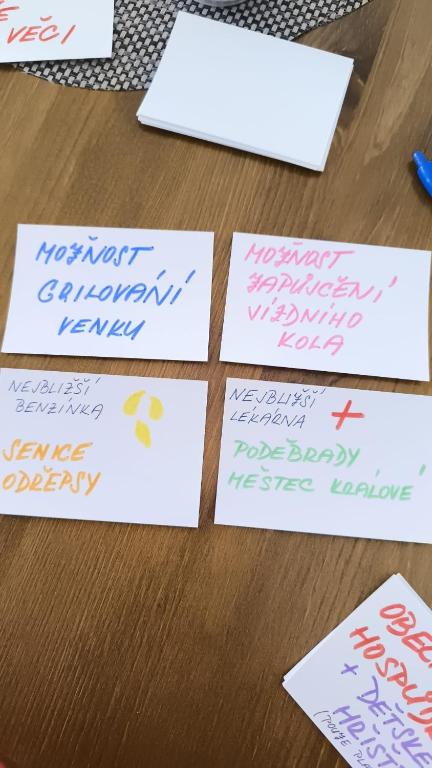 VĚCI
MOŽŇOST
GRILOVÁNÍ
VENKU
MOŽŇOST
ZAPŮJČENÍ
JÍZDNÍHO
KOLA
NEJBLIŽŠÍ
BENZÍNKA
SENICE
ODŘEPSY
NEJBLIŽŠÍ
LÉKÁRNA
PODĚBRADY
MĚSTEC KRÁLOVÉ
+ DĚTSKÉ